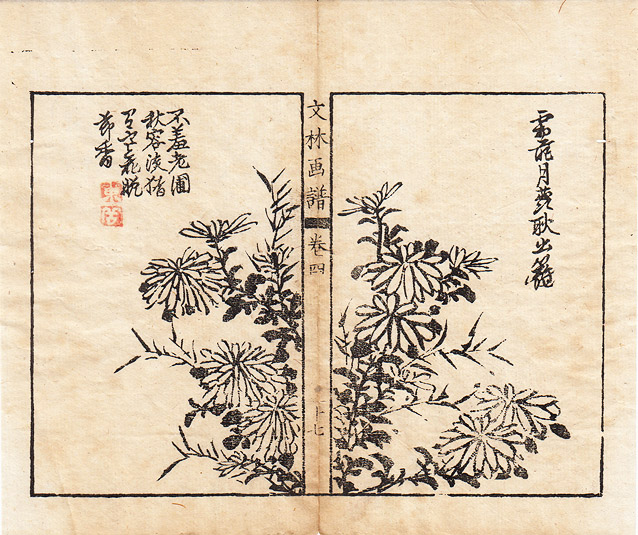 月耿出籬
文林画譜
卷四
十七
不羞老圃
秋容淡猶
花晚
節香